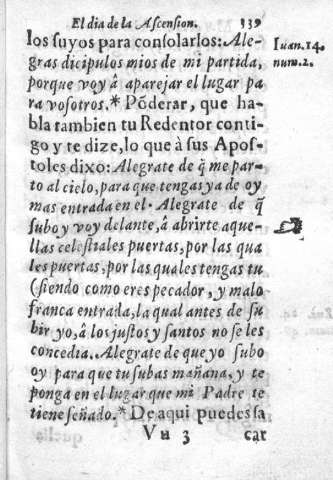 El dia de la Ascension. 339
los suyos para consolarlos: Ale-
gras dicipulos mios de mi partida,
porque voy â aparejar el lugar pa
ra vosotros.* Põderar, que ha-
bla tambien tu Redentor conti-
go y te dize, lo que à sus Apos-
toles dixo: Alegrate de q̃ me par-
to al cielo, para que tengas ya de oy
mas entrada en el. Alegrate de q̃
subo y voy delante, â abrirte aque-
llas celestiales puertas, por las qua
les puertas, por las quales tengas tu
(siendo como eres pecador, y malo
franca entrada, la qual antes de su
bir yo, â los justos y santos no se les
concedia. Alegrate de que yo subo
oy para que tu subas mañana, y te
ponga en el lugar que mi Padre te
tiene señado.* De aqui puedes sa
Vu 3 car
Iuan. 14.
num. 2.